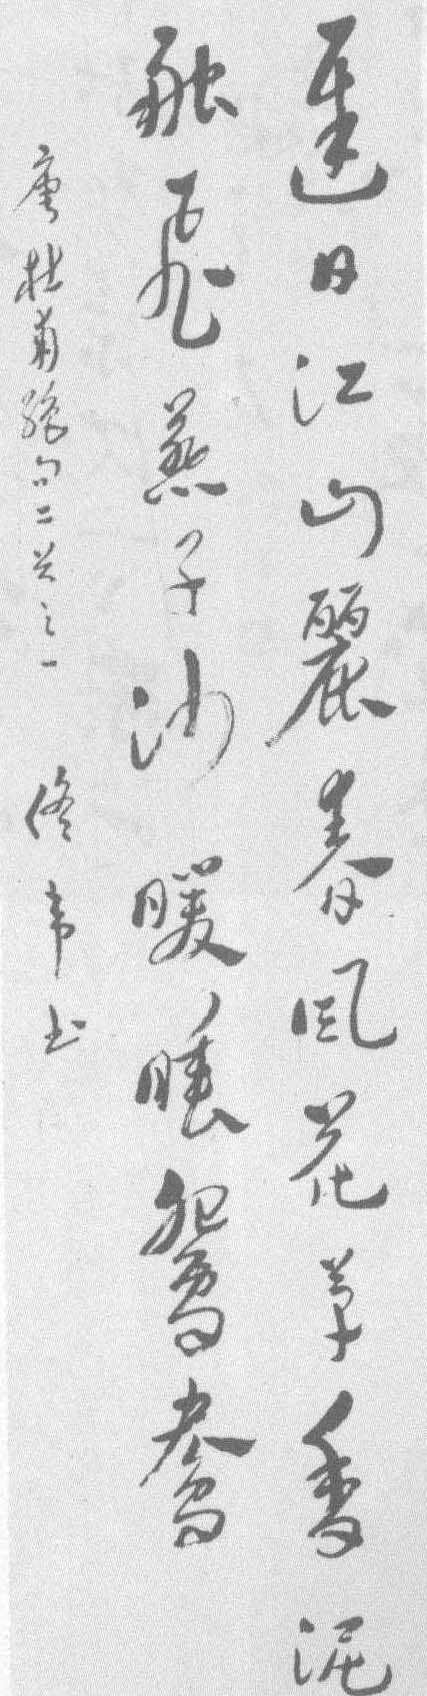 遲日江山麗春風花草香泥
融飛燕子沙暖睡鴛鴦
唐杜甫絕句二首之一 佟韦书